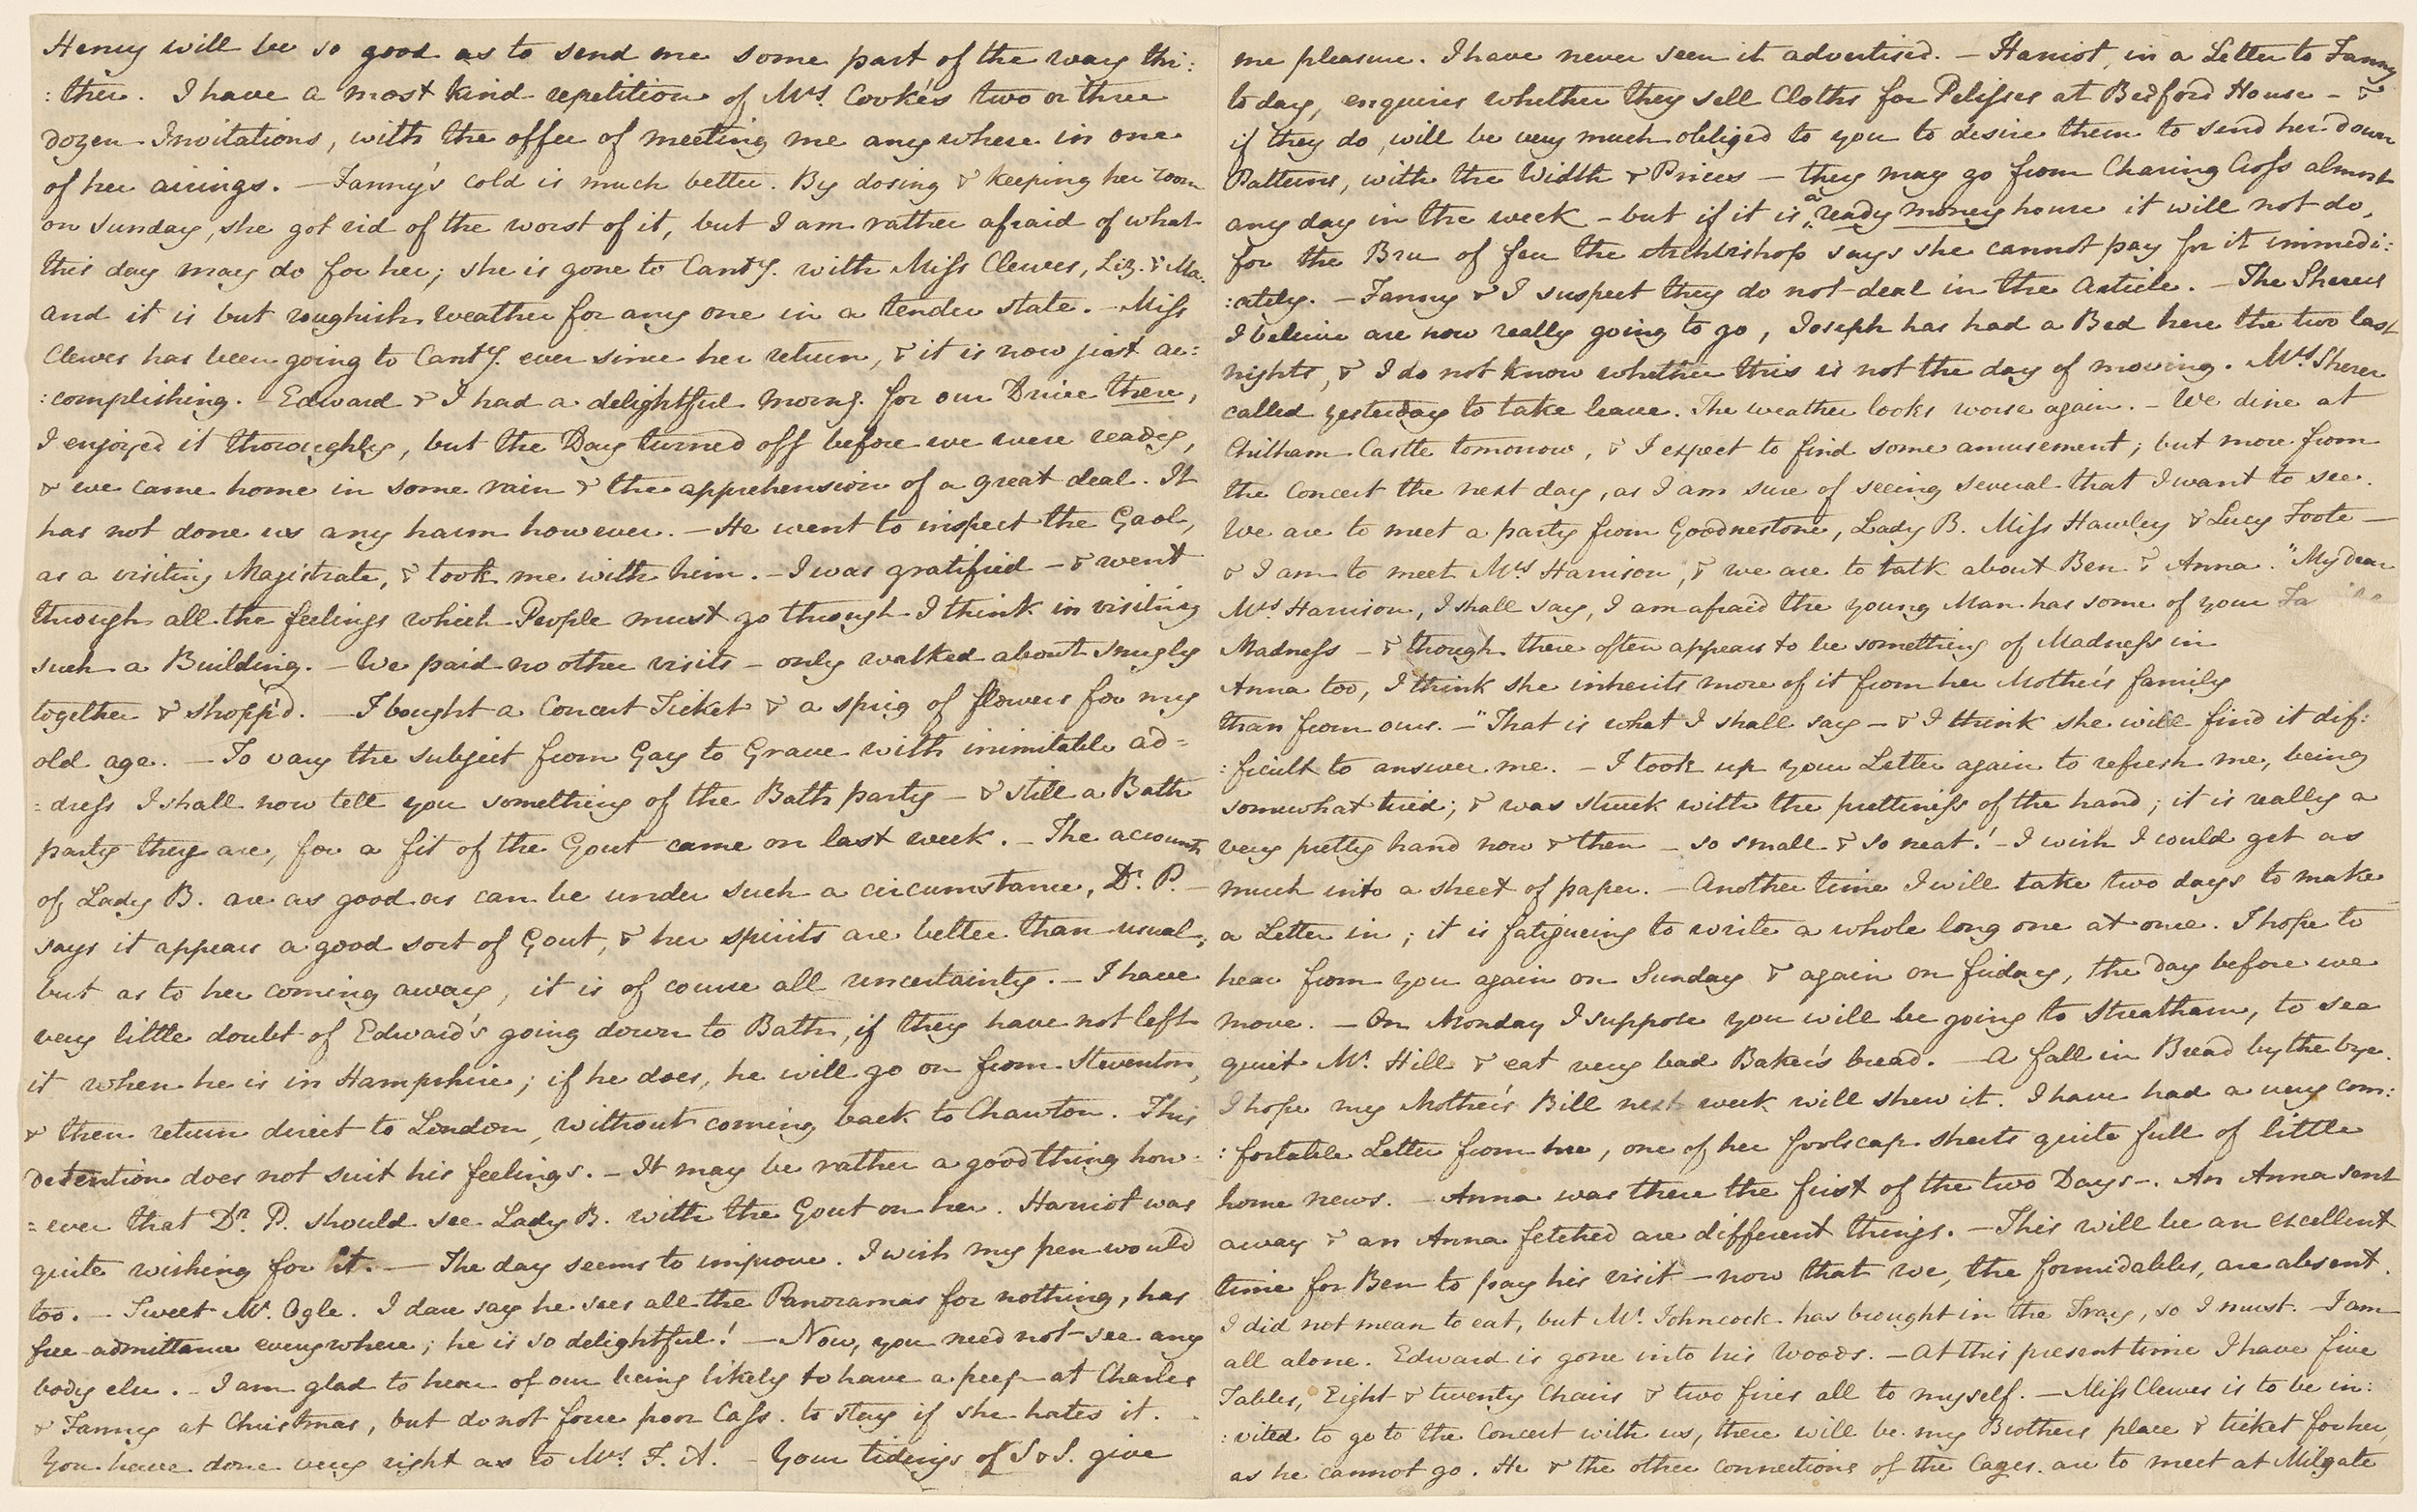 Henry will be so good as to send me some part of the way thi:
:ther. I have a most kind repetition of Mrs. Cooke's two or three
dozen Invitations, with the offer of meeting me anywhere in one
of her airings. — Fanny's cold is much better. By dosing & keeping her room
on Sunday, she got rid of the worst of it, but I am rather afraid of what
this day may do for her; she is gone to Canty. with Miss Clewes, Liz. & Ma.
and it is but roughish weather for any one in a tender state. — Miss
Clewes has been going to Canty. ever since her return, & it is now just ac:
:complishing. — Edward & I had a delightful morng. for our Drive there,
I enjoyed it thoroughly, but the Day turned off before we were ready,
& we came home in some rain & the apprehension of a great deal. It
has not done us any harm however. — He went to inspect the Gaol,
as a visiting Magistrate, & took me with him. — I was gratified — & went
through all the feelings which People must go through I think in visiting
such a Building. — We paid no other visits — only walked about snugly
together & shopp'd. — I bought a Concert Ticket & a sprig of flowers for my
old age. — To vary the subject from Gay to Grave with inimitable ad=
=dress I shall now tell you something of the Bath party — & still a Bath
party they are, for a fit of the Gout came on last week. — The accounts
of Lady B. are as good as can be under such a circumstance, Dr. P. —
says it appears a good sort of Gout, & her spirits are better than usual,
but as to her coming away, it is of course all uncertainty. — I have
very little doubt of Edward's going down to Bath, if they have not left
it when he is in Hampshire; if he does, he will go on from Steventon,
& then return direct to London, without coming back to Chawton. This
detention does not suit his feelings. — It may be rather a good thing how-
=ever that Dr. P. should see Lady B. with the Gout on her. Harriot was
quite wishing for it. — The day seems to improve. I wish my pen would
too. — Sweet Mr. Ogle. I dare say he sees all the Panoramas for nothing, has
free-admittance everywhere; he is so delightful! — Now, you need not see any
body else. — I am glad to hear of our being likely to have a peep at Charles
& Fanny at Christmas, but do not force poor Cass. to stay if she hates it. —
You have done very right as to Mrs. F. A. — Your tidings of S & S. give
me pleasure. I have never seen it advertised. — Harriot, in a Letter to Fanny
today, enquires whether they sell Cloths for Pelisses at Bedford House — &
if they do, will be very much obliged to you to desire them to send her down
Patterns, with the Width & Prices — they may go from Charing Cross almost
any day in the week — but if it is a ready money house it will not do,
for the Bru of feu the Archbishop says she cannot pay for it immedi:
:ately. — Fanny & I suspect they do not deal in the Article. — The Sherers
I beleive are now really going to go, Joseph has had a Bed here the two last
nights, & I do not know whether this is not the day of moving. Mrs. Sherer
called yesterday to take leave. The weather looks worse again. — We dine at
Chilham Castle tomorrow, & I expect to find some amusement; but more from
the Concert the next day, as I am sure of seeing several that I want to see.
We are to meet a party from Goodnestone, Lady B. Miss Hawley & Lucy Foote —
& I am to meet Mrs. Harrison, & we are to talk about Ben & Anna. "My dear
Mrs. Harrison, I shall say, I am afraid the young Man has some of your
Madness — & though there often appears to be something of Madness in
Anna too, I think she inherits more of it from her Mother's family
than from ours. —" That is what I shall say — & I think she will find it dif:
:ficult to answer me. — I took up your Letter again to refresh me, being
somewhat tired; & was struck with the prettiness of the hand; it is really a
very pretty hand now & then — so small & so neat! — I wish I could get as
much into a sheet of paper. — Another time I will take two days to make
a Letter in; it is fatigueing to write a whole long one at once. I hope to
hear from you again on Sunday & again on friday, the day before we
move. — On Monday I suppose you will be going to Streatham, to see
quiet Mr. Hill & eat very bad Baker's bread. — A fall in Bread by the bye.
I hope my Mother's Bill next week will shew it. I have had a very com:
:fortable Letter from her, one of her foolscap sheets quite full of little
home news. — Anna was there the first of the two Days —. An Anna sent
away & an Anna fetched are different things. — This will be an excellent
time for Ben to pay his visit — now that we, the formidables, are absent.
I did not mean to eat, but Mr. Johncock has brought in the Tray, so I must. — I am
all alone. Edward is gone into his Woods. — At this present time I have five
Tables, Eight & twenty Chairs & two fires all to myself. — Miss Clewes is to be in:
:vited to go to the Concert with us, there will be my Brother's place & ticket for her,
as he cannot go. He & the other connections of the Cages are to meet at Milgate